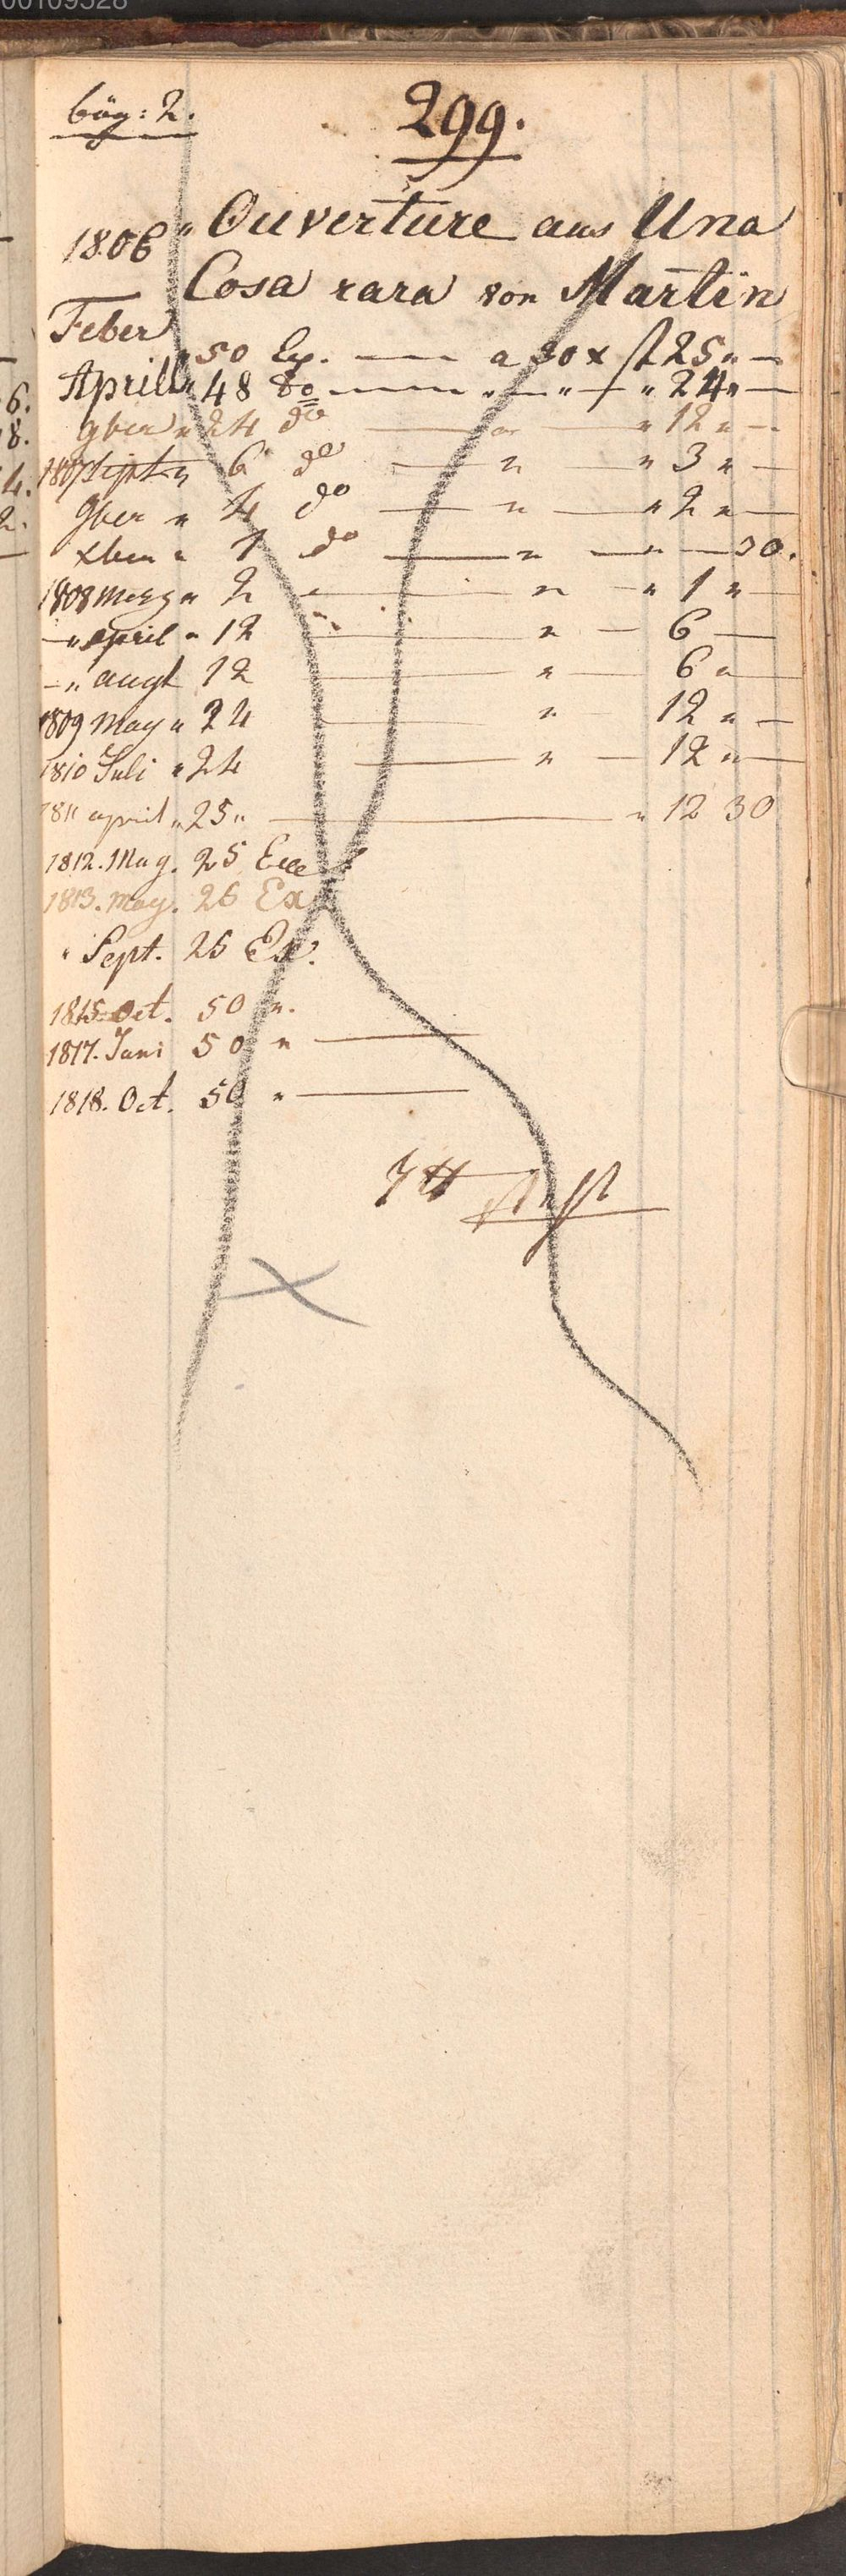 00109528
bög: 2.
299.
1806 " Ouverture aus Una
Cosa rara von Martin
Feber
" 50 Ex. — a 30 x f 25 " —
Aprill " 48 do — " — " — " 24 " —
9ber " 24 do — " 12 " —
1807 Sept " 6 do — " — " 3 " —
9ber " 4 do — " — " 2 " —
xber " 1 do — " — " — 30.
1808 Merz " 2 " — " — " 1 " —
— " april " 12 — " — 6 —
— " augt 12 — " — 6 " —
1809 May " 24 — " — 12 " —
1810 Juli " 24 — " — 12 " —
1811 april " 25 " — " 12 30
1812. May. 25 Exx
1813. May. 26 Ex.
" Sept. 26 Ex.
1815. Oct. 50 ".
1817. Juni 50 " —
1818. Oct. 50 " —
6.
8.
4.
2.